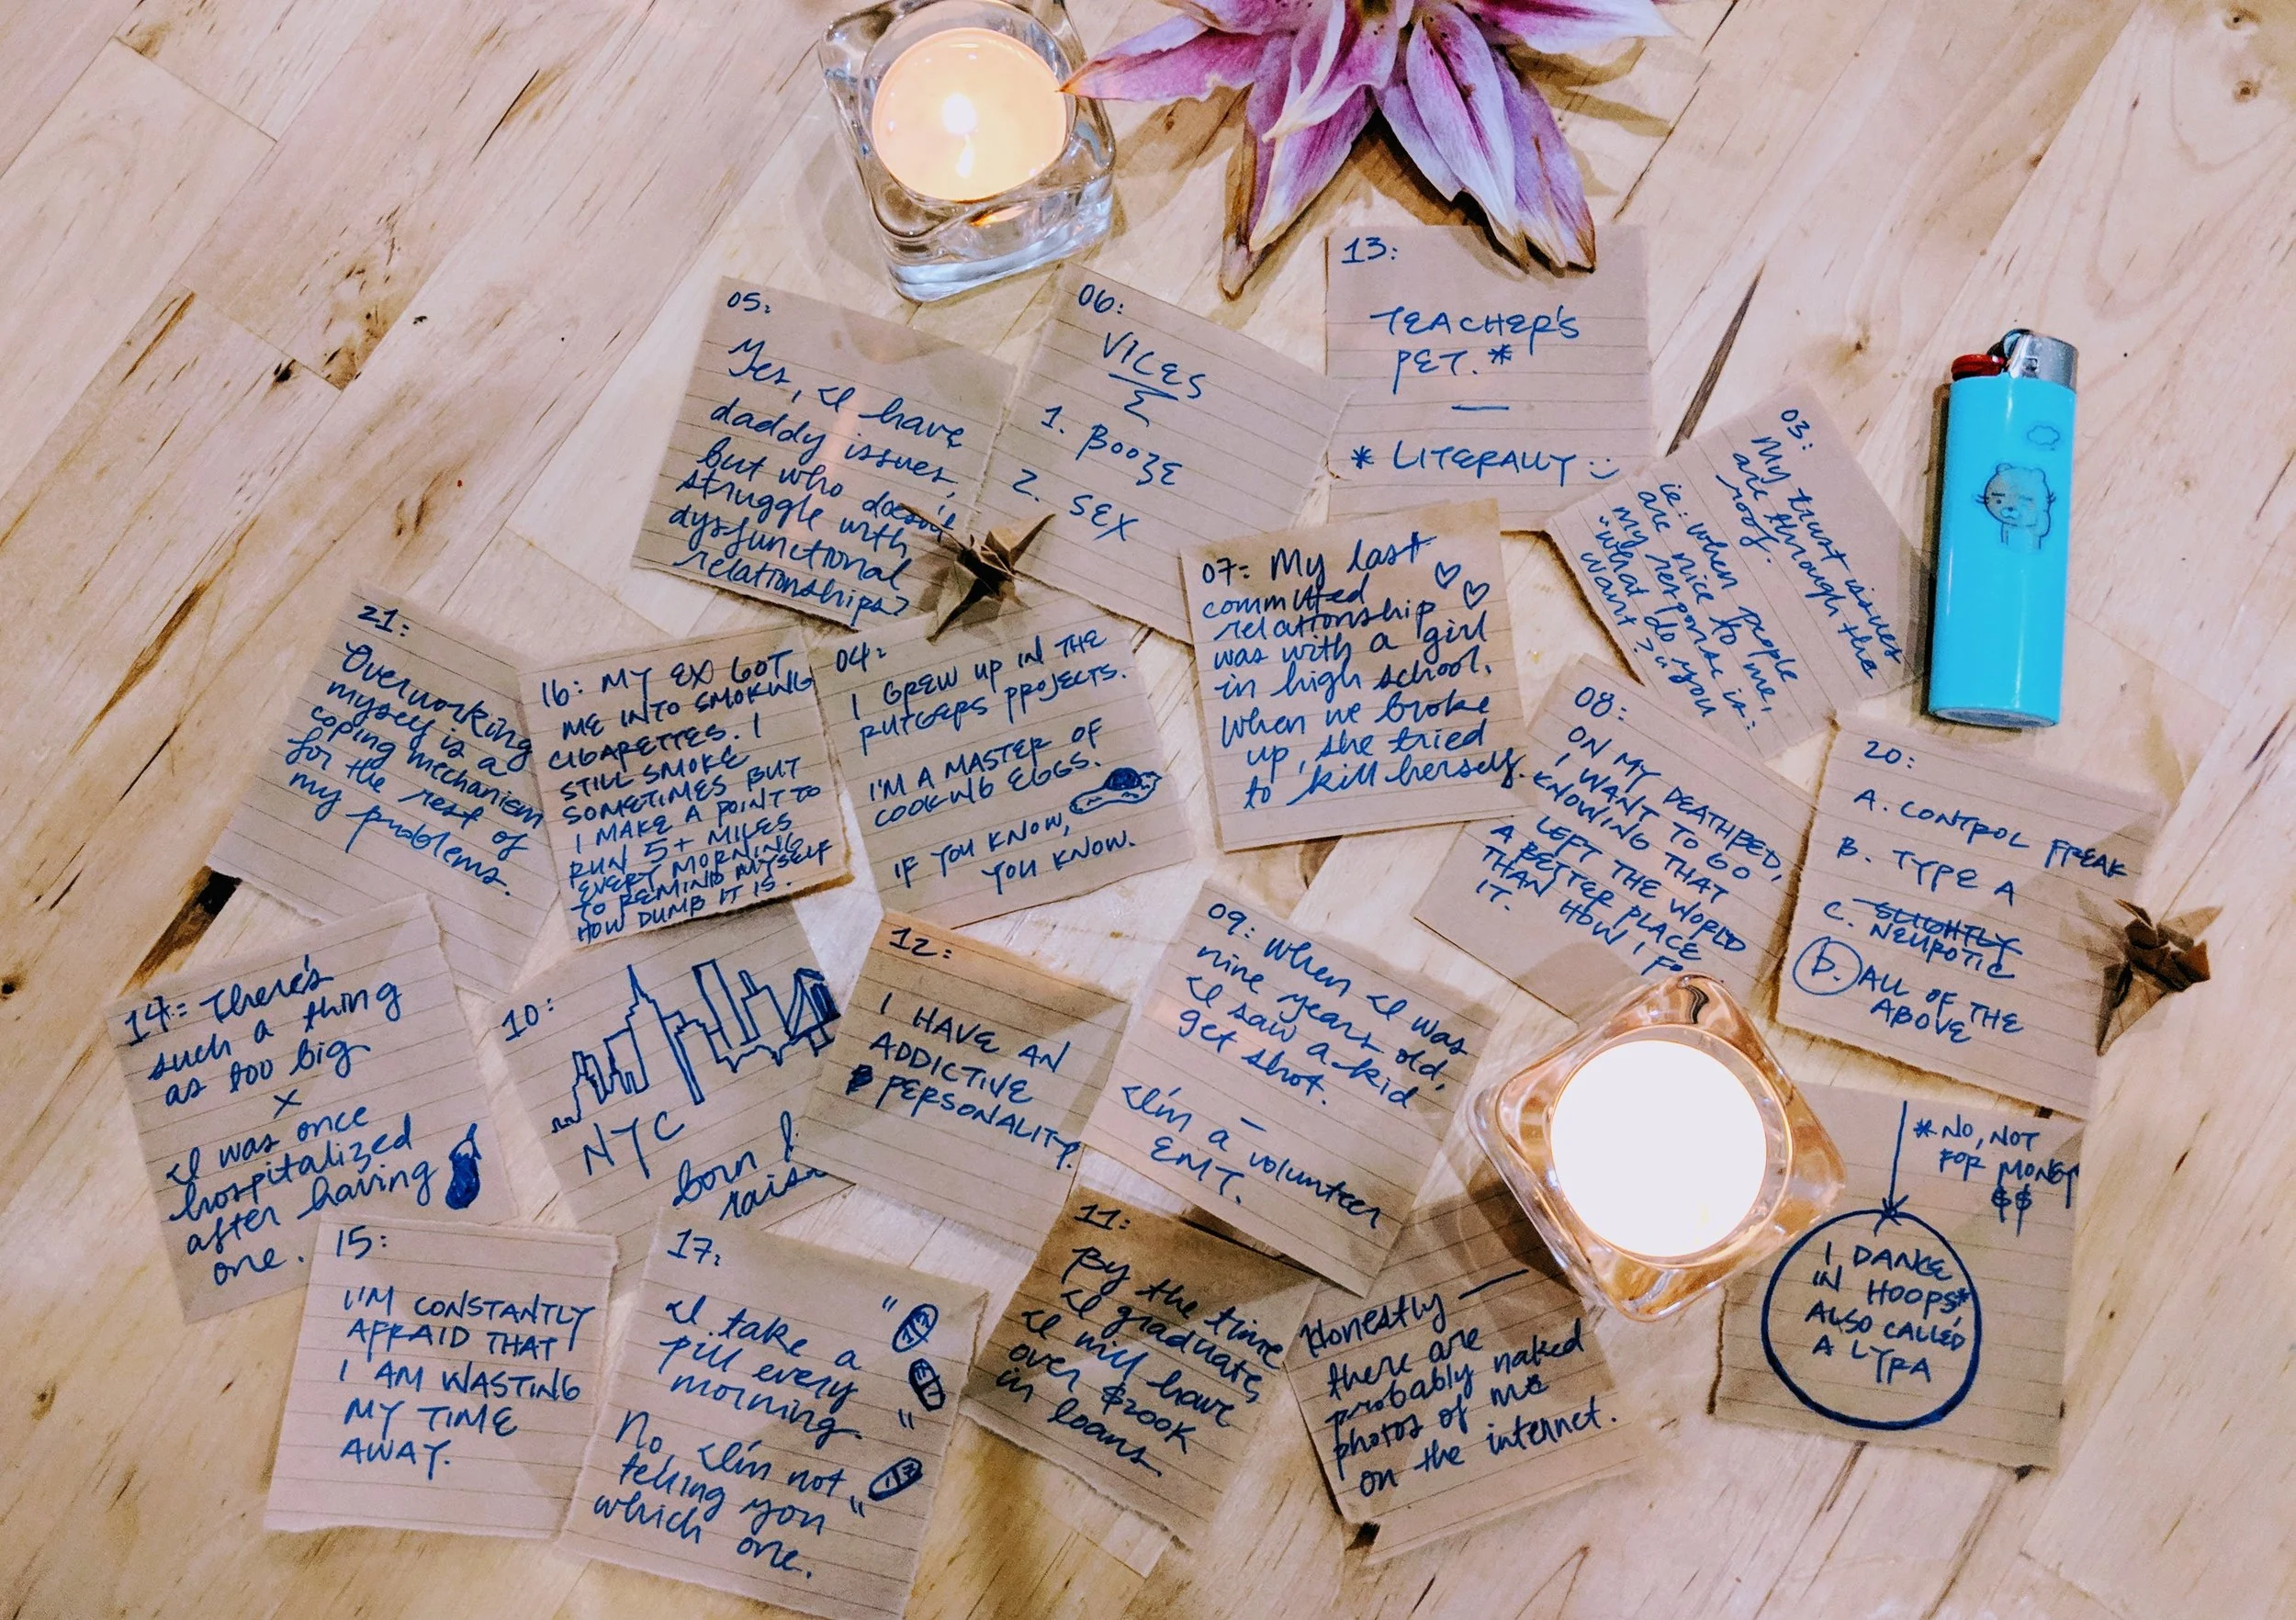 05:
Yes, I have
daddy issues,
but who doesn't
struggle with
dysfunctional
relationships?
06:
VICES
1. BOOZE
2. SEX
13:
TEACHER'S
PET.*
* LITERALLY :)
03:
My trust issues
are through the
roof.
ie: when people
are nice to me,
my response is:
"What do you
want?"
21:
Overworking
myself is a
coping mechanism
for the rest of
my problems.
16: MY EX GOT
ME INTO SMOKING
CIGARETTES. I
STILL SMOKE
SOMETIMES BUT
I MAKE A POINT TO
RUN 5+ MILES
EVERY MORNING
TO REMIND MYSELF
HOW DUMB IT IS.
04:
I GREW UP IN THE
RUTGERS PROJECTS.
I'M A MASTER OF
COOKING EGGS.
IF YOU KNOW,
YOU KNOW.
07: My last
committed
relationship
was with a girl
in high school.
When we broke
up, she tried
to kill herself.
08:
ON MY DEATHBED,
I WANT TO GO
KNOWING THAT
I LEFT THE WORLD
A BETTER PLACE
THAN HOW I FO
IT.
20:
A. CONTROL FREAK
B. TYPE A
C. SLIGHTLY
NEUROTIC
D. ALL OF THE
ABOVE
14: There's
such a thing
as too big
x
I was once
hospitalized
after having
one.
10:
NYC
born &
raise
12:
I HAVE AN
ADDICTIVE
PERSONALITY.
09: When I was
nine years old,
I saw a kid
get shot.
—
I'm a volunteer
EMT.
* NO, NOT
FOR MONEY
$$
I DANCE
IN HOOPS*
ALSO CALLED
A LYRA
15:
I'M CONSTANTLY
AFRAID THAT
I AM WASTING
MY TIME
AWAY.
17:
I take a
pill every
morning.
No, I'm not
telling you
which one.
11:
By the time
I graduate,
I will have
over $200K
in loans.
Honestly —
there are
probably naked
photos of me
on the internet.